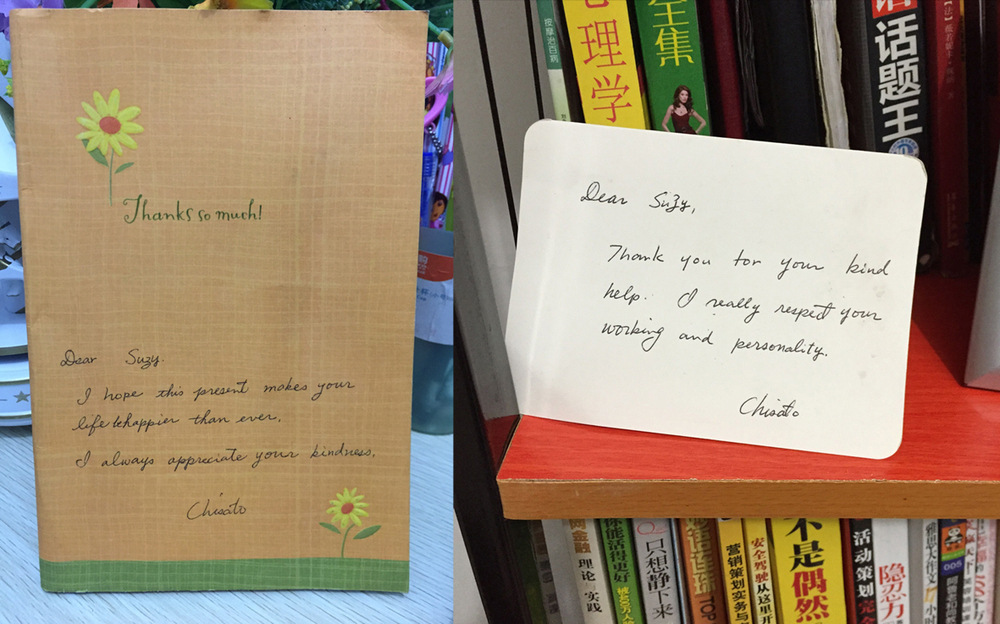 Thanks so much!
Dear Suzy.
I hope this present makes your
life happier than ever.
I always appreciate your kindness.
Chisato
Dear Suzy,
Thank you for your kind
help. I really respect your
working and personality.
Chisato
按摩治百病
心理学
全集
话题王
[法]
理论与实践
你能活得更好
只想静下来
营销策划实务与
安全驾驶从这里开
不是偶然
活动策划完全
隐忍力
雅思大作文
005